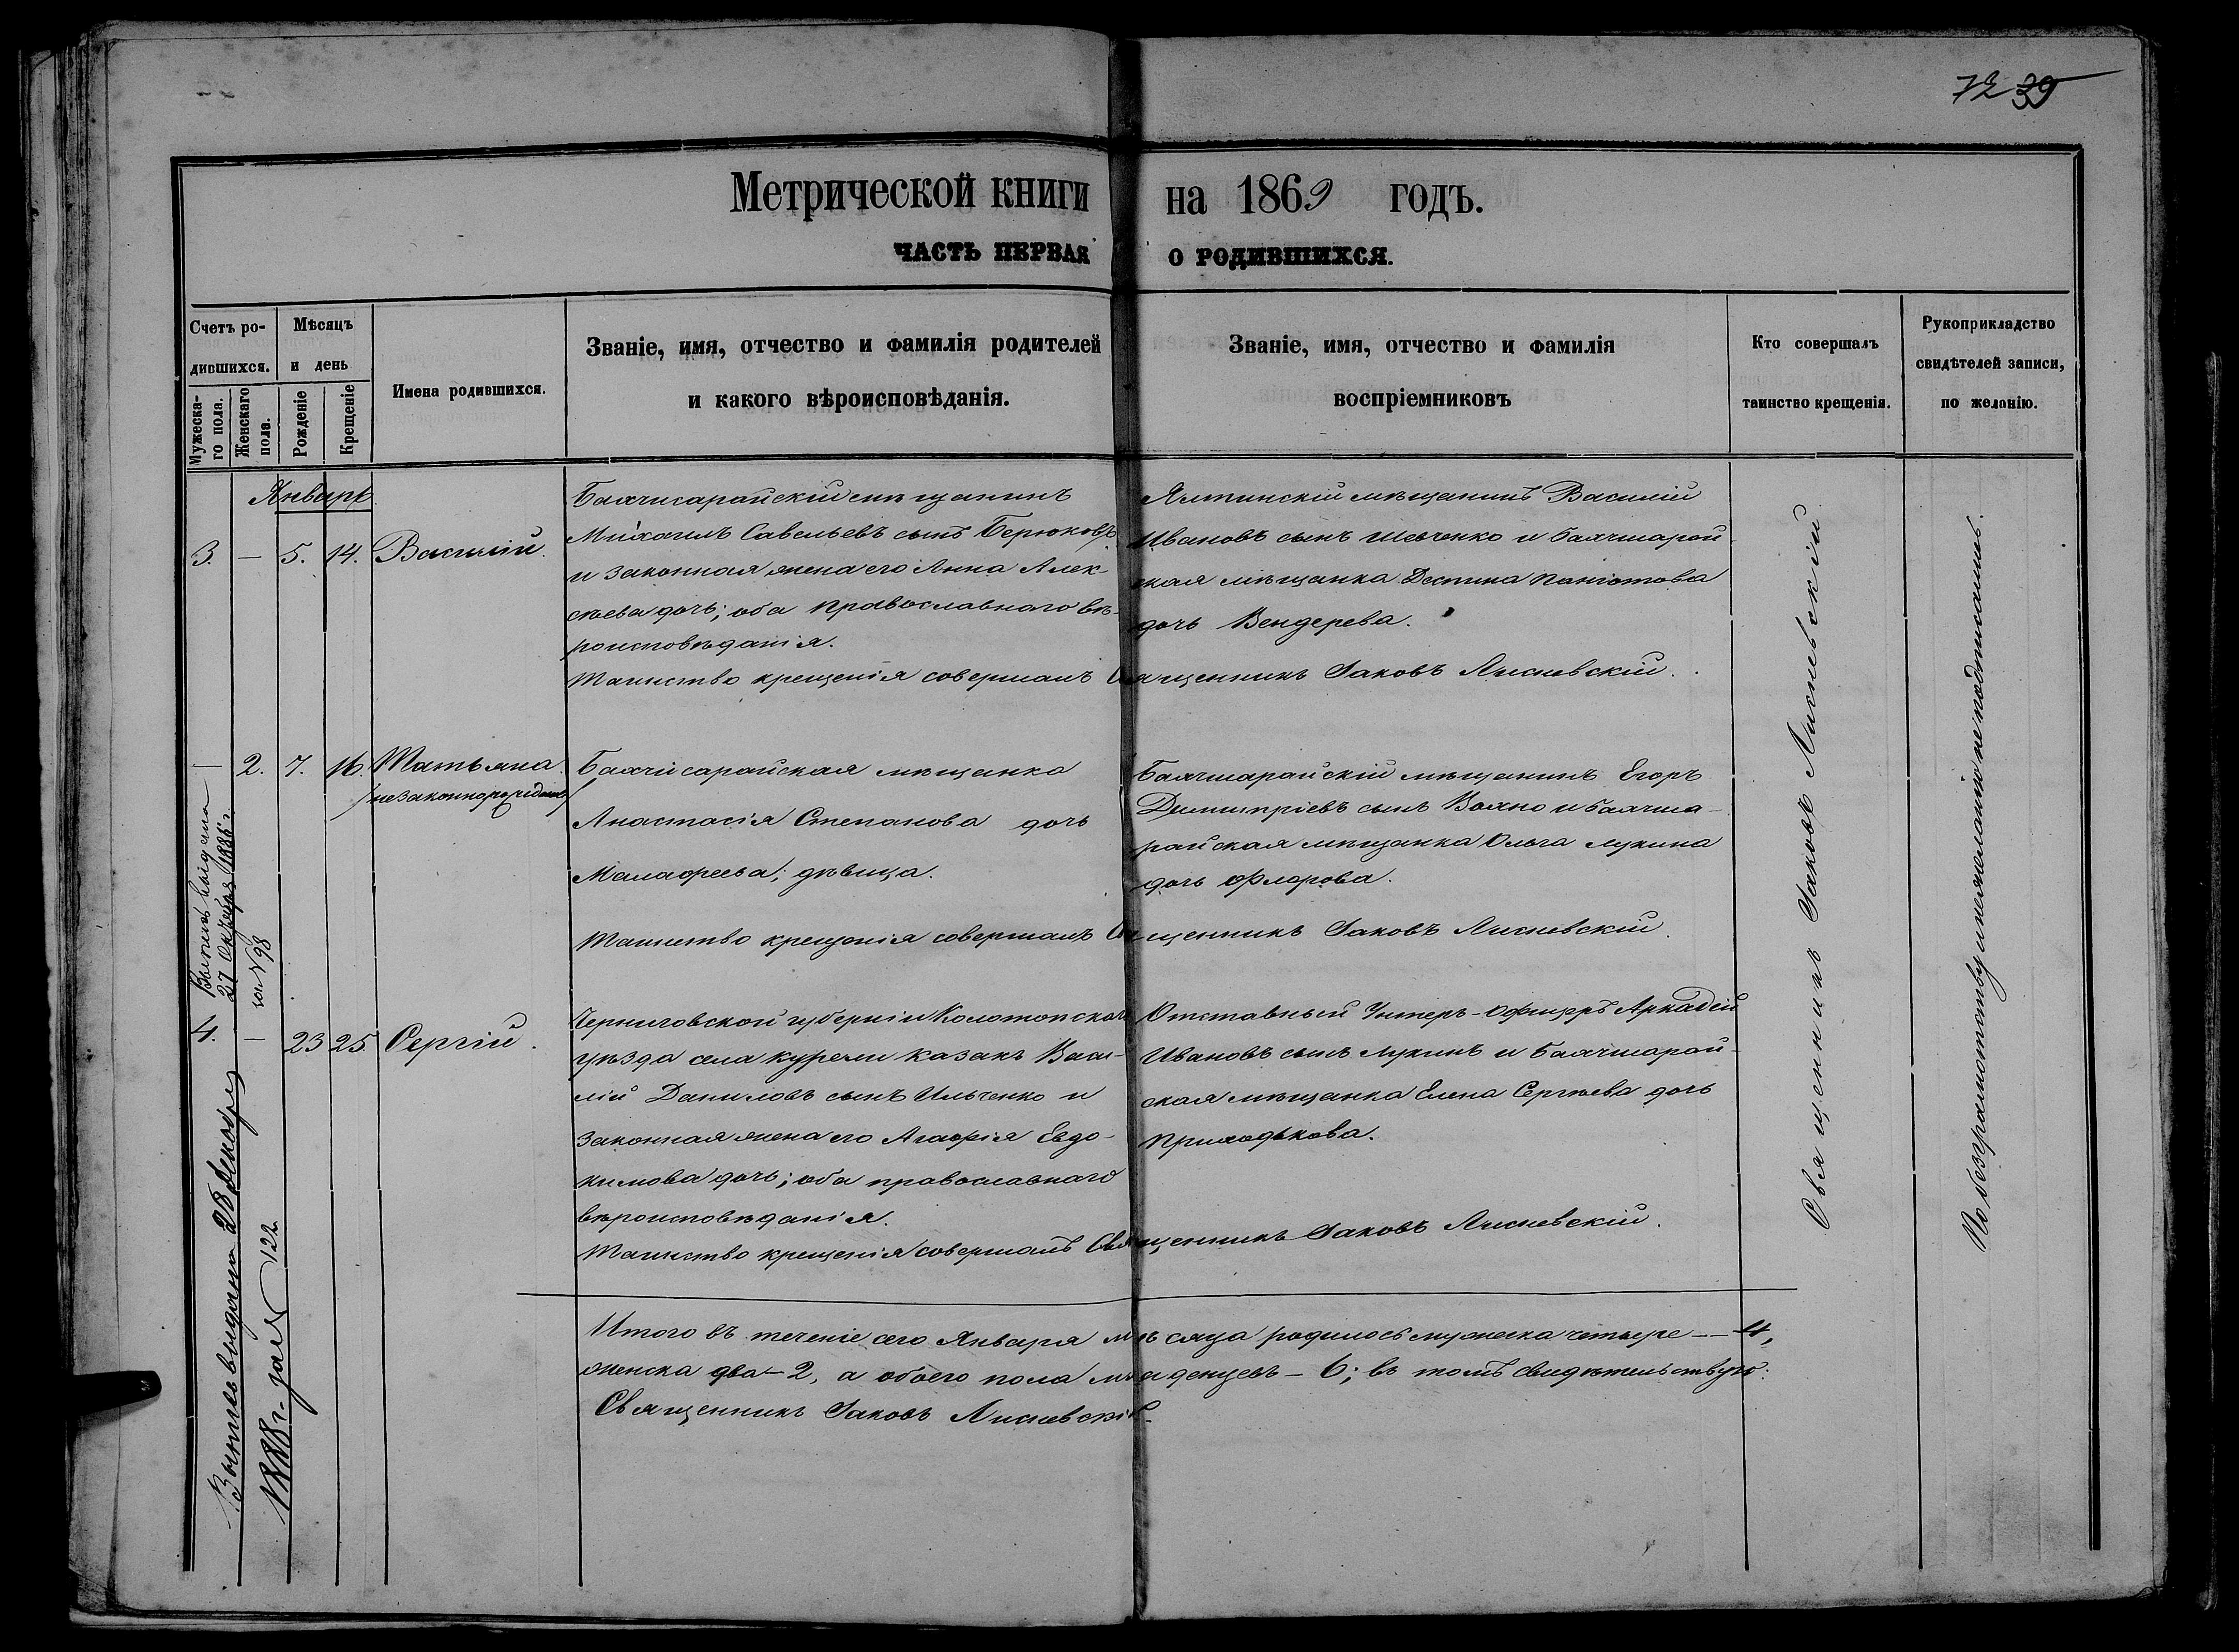 72 39
Метрической книги на 1869 годъ.
ЧАСТЬ ПЕРВАЯ О РОДИВШИХСЯ.
Счетъ ро-
дившихся.
Мужеска-
го пола.
Женскаго
пола.
Мѣсяцъ
и день
Рожденіе
Крещеніе
Имена родившихся.
Званіе, имя, отчество и фамилія родителей
и какого вѣроисповѣданія.
Званіе, имя, отчество и фамилія
воспріемниковъ
Кто совершалъ
таинство крещенія.
Рукоприкладство
свидѣтелей записи,
по желанію.
Январь
3. — 5. 14. Василій.
Бахчисарайскій мѣщанинъ
Михаилъ Савельевъ сынъ Берюковъ
и законная жена его Анна Алек-
сѣева дочь; оба православнаго вѣ-
роисповѣданія.
Ялтинскій мѣщанинъ Василій
Ивановъ сынъ Шевченко и Бахчисарай-
ская мѣщанка Деспина Паніотова
дочь Вендерева.
Таинство крещенія совершалъ Священникъ Іаковъ Лисневскій.
— 2. 7. 16. Татьяна.
/незаконнорожденная/
Бахчисарайская мѣщанка
Анастасія Степанова дочь
Малафеева; дѣвица.
Бахчисарайскій мѣщанинъ Егоръ
Димитріевъ сынъ Вояно и Бахчиса-
райская мѣщанка Ольга Лукина
дочь Флорова.
Таинство крещенія совершалъ Священникъ Іаковъ Лисневскій.
27 Октября 1886 г.
за № 98
4. — 23 25 Сергій.
Черниговской губерніи Конотопскаго
уѣзда села Курени казакъ Васи-
лій Даниловъ сынъ Ильченко и
законная жена его Агафія Евдо-
кимова дочь; оба православнаго
вѣроисповѣданія.
Отставный Унтеръ-Офицеръ Аркадій
Ивановъ сынъ Лукинъ и Бахчисарай-
ская мѣщанка Елена Сергѣева дочь
Приходькова.
Таинство крещенія совершалъ Священникъ Іаковъ Лисневскій.
Выпись выдана 28 Декабря
1888 г. за № 122
Итого въ теченіе сего Января мѣсяца родилось мужеска четыре — 4,
женска два — 2, а обоего пола младенцевъ — 6; въ томъ свидѣтельствую:
Священникъ Іаковъ Лисневскій
Священникъ Іаковъ Лисневскій
По безграмотству и нежеланію не подписались.